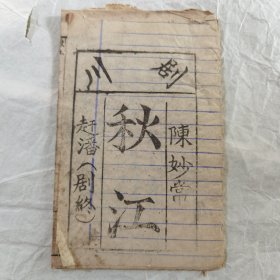 川剧
陳妙常
秋江
赶潘(剧終)